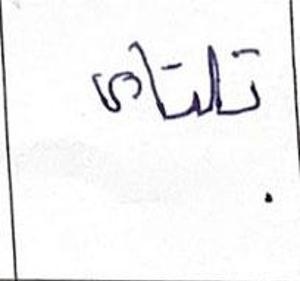 تلتاى
.